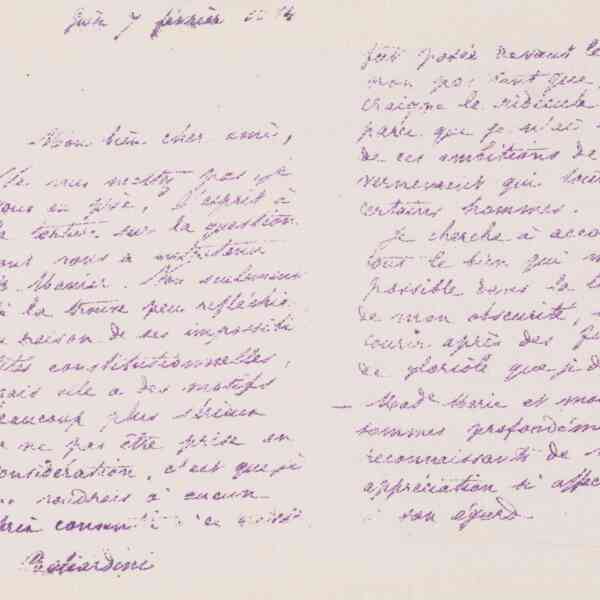 7 février
Mon bien cher ami,
Ne vous mettez pas je
vous en prie, l'esprit à
la torture sur la question
dont vous a entretenu
Mr Monier. Non seulement
je la trouve peu réfléchie
en raison de ses impossibi
lités constitutionnelles,
mais elle a des motifs
beaucoup plus sérieux
de ne pas être prise en
considération, c'est que je
ne voudrais à aucun
prix
fût posée devant le
non pas tant que
craigne le ridicule
parce que je n'ai
de ces ambitions de
vernement qui
certains hommes.
Je cherche à acco
tout le bien qui
possible dans la
de mon obscurité,
courir après des
de gloriole que je d
— Made Marie et moi
sommes profondém
reconnaissants de
appréciation si affec
à son égard.